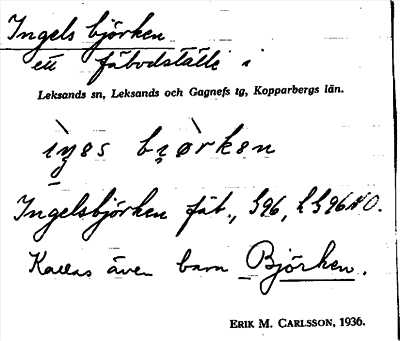 Ingels björken
ett fäbodställe i
Leksands sn, Leksands och Gagnefs tg, Kopparbergs län.
Ingelsbjörken fäb., 596, h 596 NO.
Kallas även bara Björken.
ERIK M. CARLSSON, 1936.